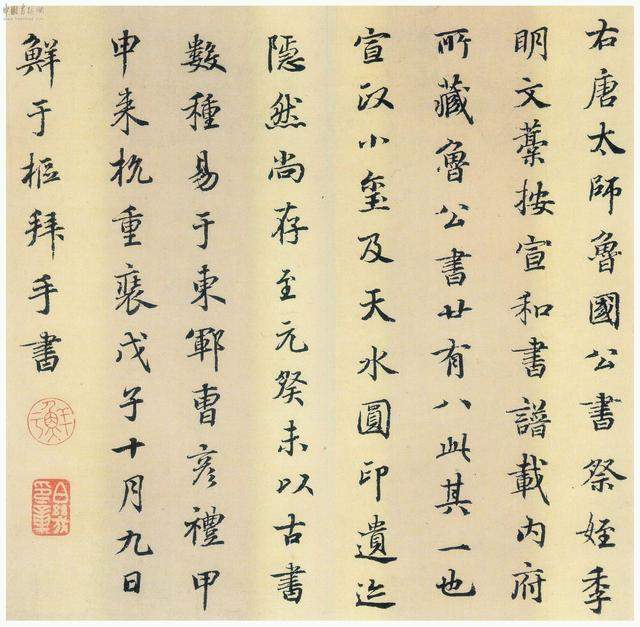 右唐太師魯國公書祭姪季
明文藁按宣和書譜載內府
所藏魯公書廿有八此其一也
宣政小璽及天水圓印遺迹
隱然尚存至元癸未以古書
數種易于東鄆曹彥禮甲
申来杭重裝戊子十月九日
鮮于樞拜手書